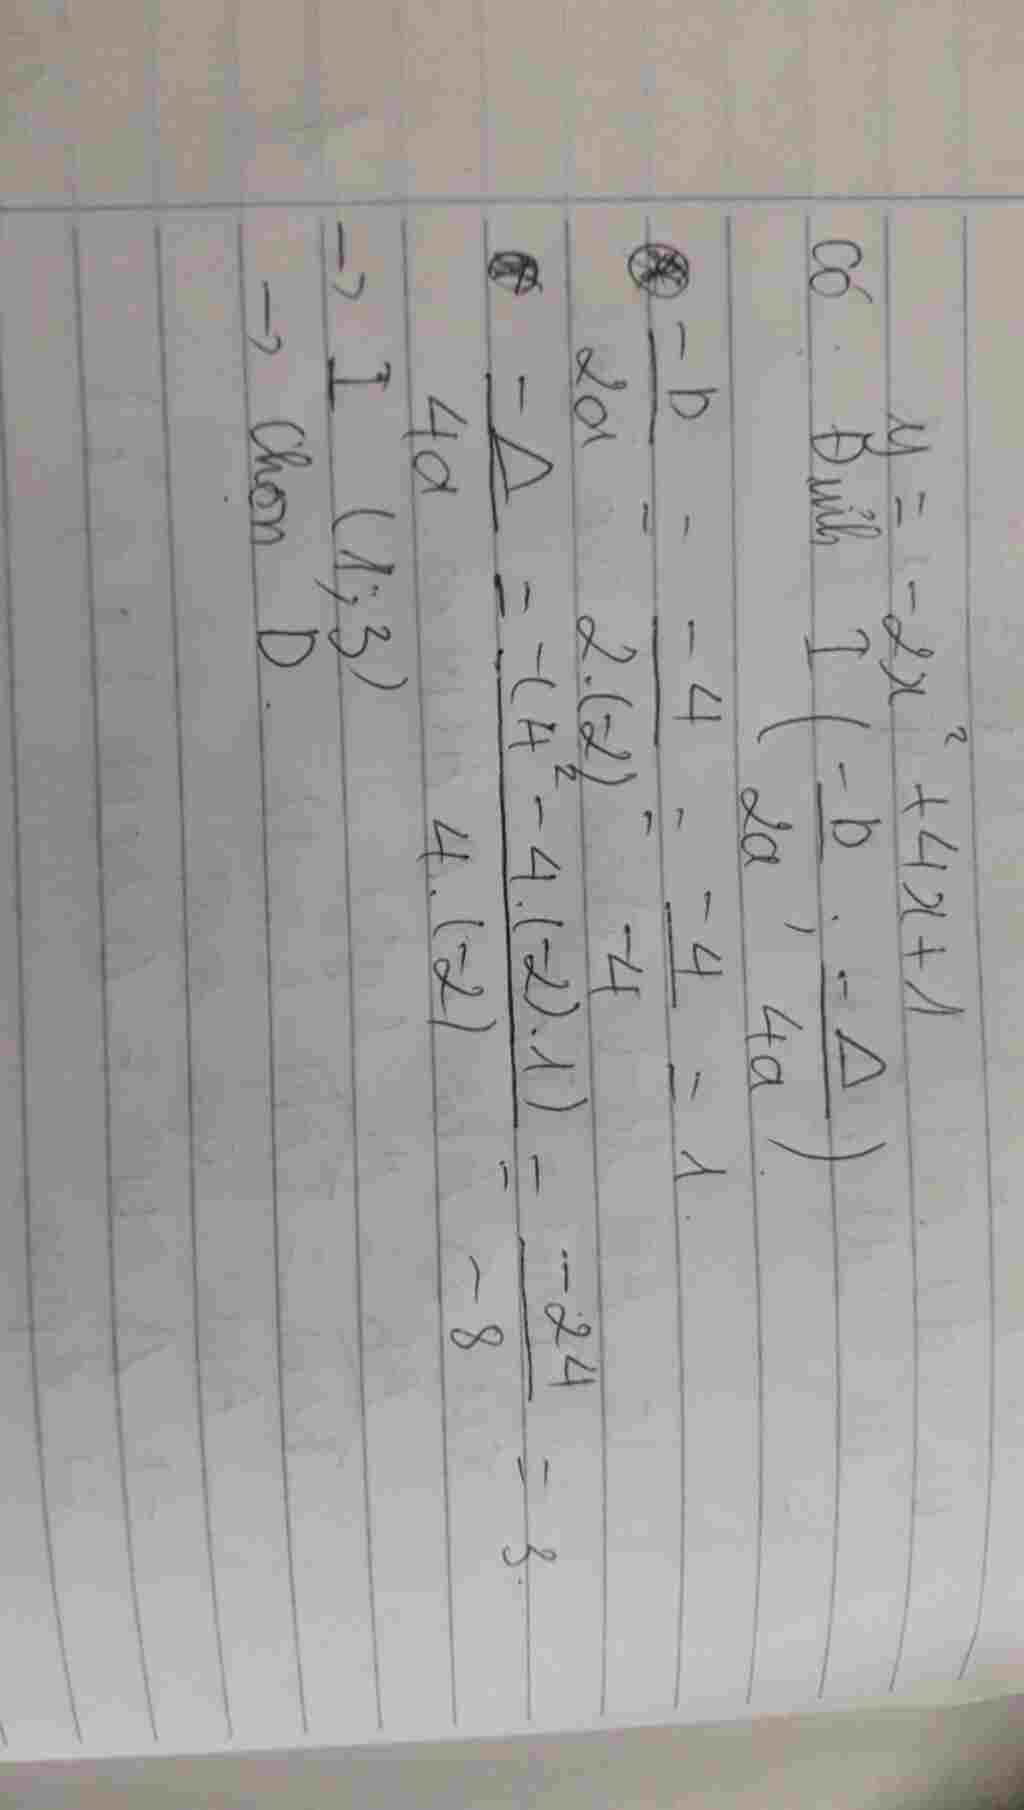 y = -2x² + 4x + 1
Có Đỉnh I (-b/2a ; -Δ/4a)
-b/2a = -4/2.(-2) = -4/-4 = 1.
-Δ/4a = -(4² - 4.(-2).1)/4.(-2) = -24/-8 = 3.
→ I (1; 3)
→ Chọn D.